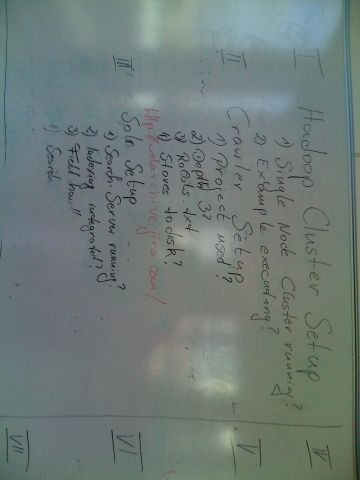 I Hadoop Cluster Setup
1) Single Node Cluster running?
2) Example executing?
II Crawler Setup
1) Project used?
2) Depth 3?
3) Robots.txt
4) Stores to disk?
III Solr Setup
1) Search Server running?
2) Indexing integrated?
3) Field
4) Search
IV
V
VI
VII